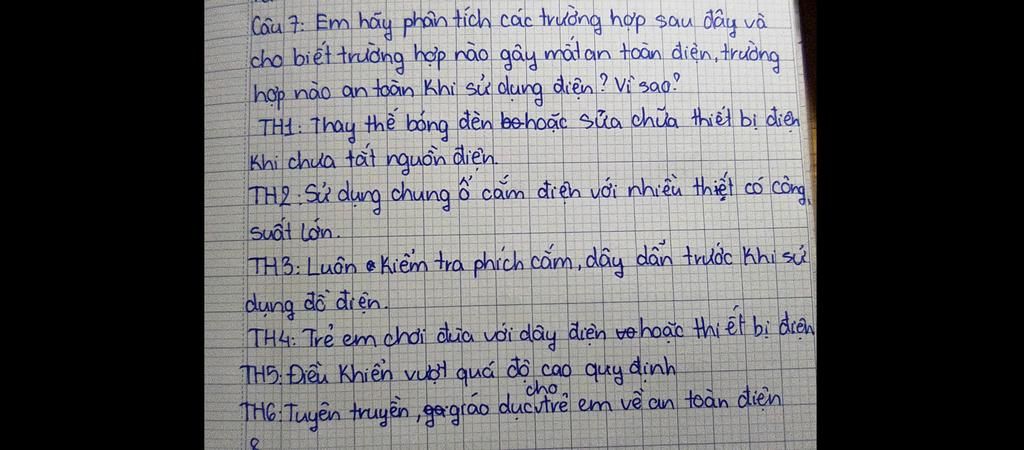 Câu 7: Em hãy phân tích các trường hợp sau đây và
cho biết trường hợp nào gây mất an toàn điện, trường
hợp nào an toàn khi sử dụng điện? Vì sao?
TH1: Thay thế bóng đèn hoặc sữa chữa thiết bị điện
khi chưa tắt nguồn điện.
TH2: Sử dụng chung ổ cắm điện với nhiều thiết có công
suất lớn.
TH3: Luôn kiểm tra phích cắm, dây dẫn trước khi sử
dụng đồ điện.
TH4: Trẻ em chơi đùa với dây điện hoặc thiết bị điện
TH5: Điều khiển vượt quá độ cao quy định
TH6: Tuyên truyền, giáo dục cho trẻ em về an toàn điện